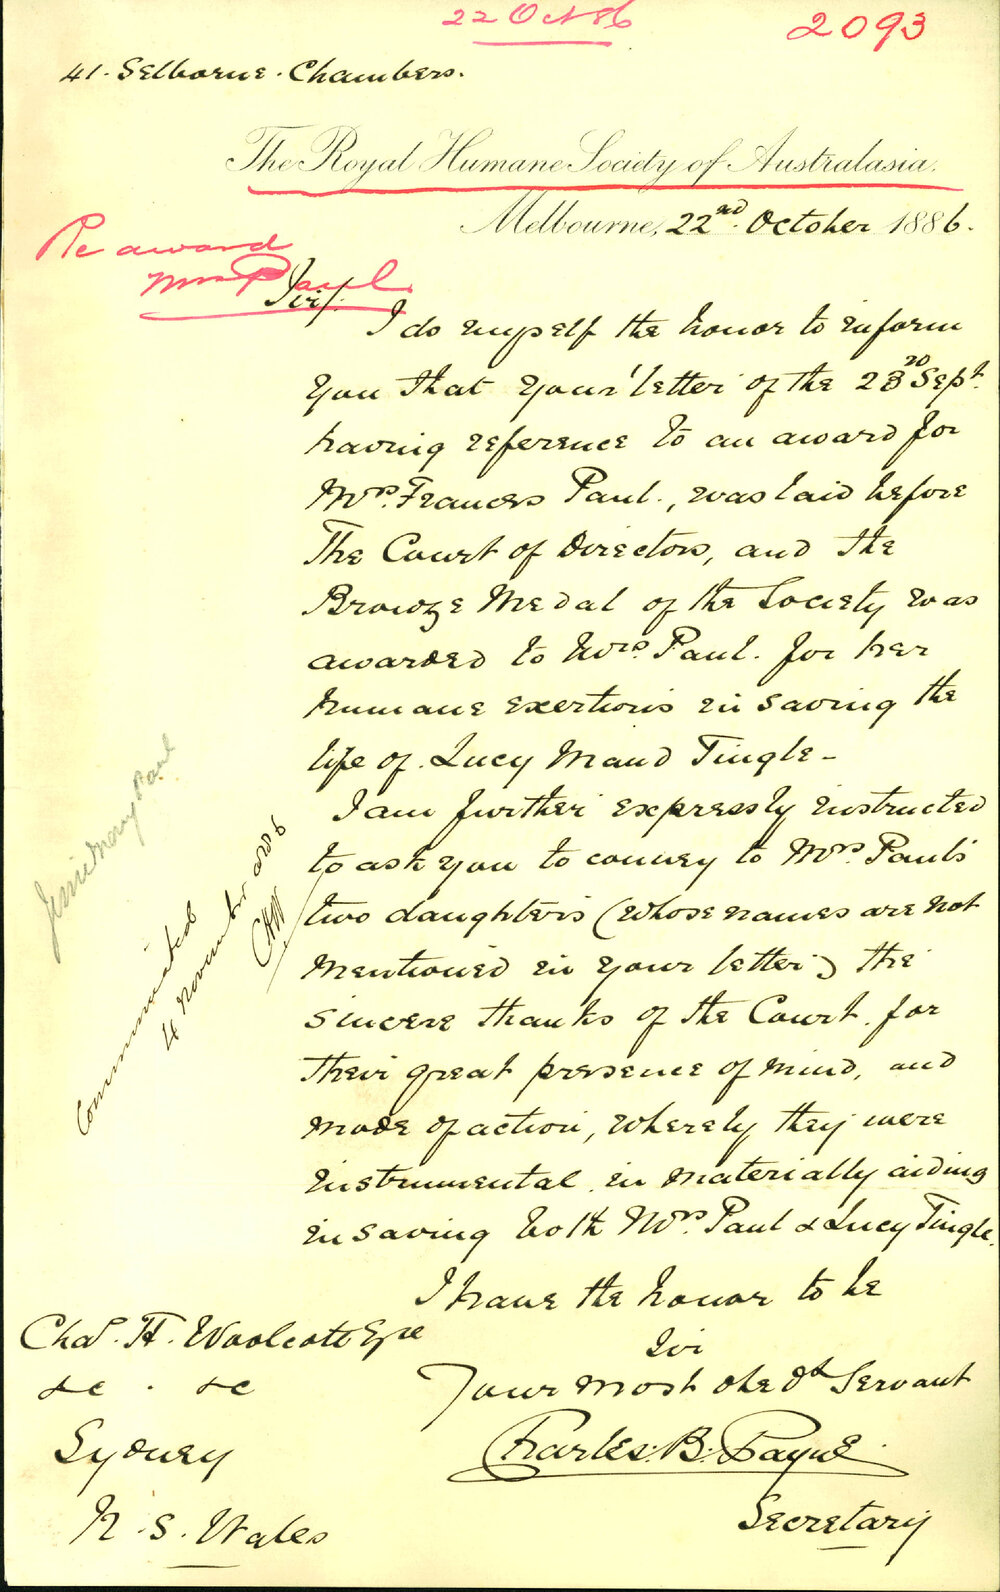 22 Oct 86
2093
41. Selborne. Chambers.
The Royal Humane Society of Australasia.
Melbourne, 22nd. October 1886.
Re award
Mrs Paul
Sir/.
I do myself the honor to inform
you that your letter of the 23rd Sept.
having reference to an award for
Mrs. Frances Paul., was laid before
The Court of Directors, and the
Bronze Medal of the Society was
awarded to Mrs. Paul. for her
humane exertions in saving the
life of. Lucy Maud Tingle -
I am further expressly instructed
to ask you to convey to Mrs. Paul's
two daughters (whose names are not
mentioned in your letter) the
sincere thanks of the Court. for
their great presence of mind, and
mode of action, whereby they were
instrumental. in materially aiding
in saving both Mrs. Paul & Lucy Tingle.
Mary Paul
Communicated
4 November 1886
CHW
I have the honor to be
Sir
Your most obedt Servant
Charles. B. Payne.
Secretary
Chas. H. Woolcott Esqre
&c . &c
Sydney
N. S. Wales